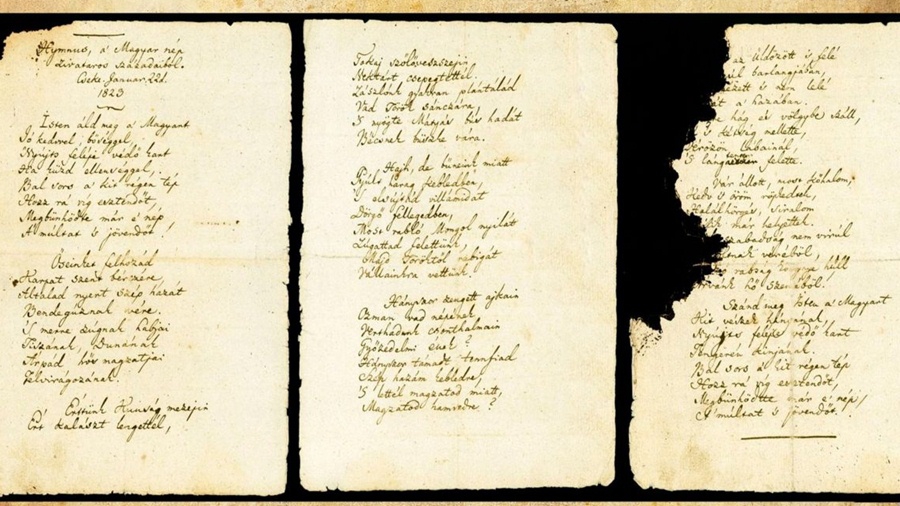 Hymnus, a' Magyar nép
zivataros századaiból.
Cseke, Januar. 22d.
1823
Isten áldd meg a' Magyart
Jó kedvvel, bőséggel,
Nyújts feléje védő kart
Ha küzd ellenséggel;
Bal sors a' kit régen tép
Hozz rá víg esztendőt,
Megbünhödte már e' nép
A' múltat 's jövendőt!
Őseinket felhozád
Kárpát szent bérczére,
Általad nyert szép hazát
Bendegúznak vére.
'S merre zúgnak habjai
Tiszának, Dunának
Árpád hős magzatjai
Felvirágozának.
Értünk Kunság mezein
Ért kalászt lengettél,
Tokaj szőlővesszein
Nektárt csepegtettél.
Zászlónk gyakran plántálád
Vad Török sánczára,
'S nyögte Mátyás bús hadát
Bécsnek büszke vára.
Hajh, de bűneink miatt
Gyúlt harag kebledben,
'S elsújtád villámidat
Dörgő fellegedben,
Most rabló Mongol nyilát
Zúgattad felettünk,
Majd Töröktől rabigát
Vállainkra vettünk.
Hányszor zengett ajkain
Ozman vad népének
Vert hadunk csonthalmain
Győzedelmi ének?
Hányszor támadt tenfiad
Szép hazám kebledre,
'S lettél magzatod miatt,
Magzatod hamvedre?
az üldözött 's felé
barlangjában,
nem lelé
a' hazában.
hág és völgybe száll,
's kétség mellette,
Vérözön lábainál,
'S lángtenger felette.
Vár állott, most kőhalom;
Kedv 's öröm röpkedtek,
Halálhörgés, siralom
már helyettek.
szabadság nem virúl
véréből,
rabság könnye hull
hő szeméből!
Szánd meg Isten a' Magyart
Kit vészek hányának,
Nyújts feléje védő kart
Tengerén kínjának.
Bal sors a' kit régen tép
Hozz rá víg esztendőt,
Megbünhödte már e' nép
A' múltat 's jövendőt.